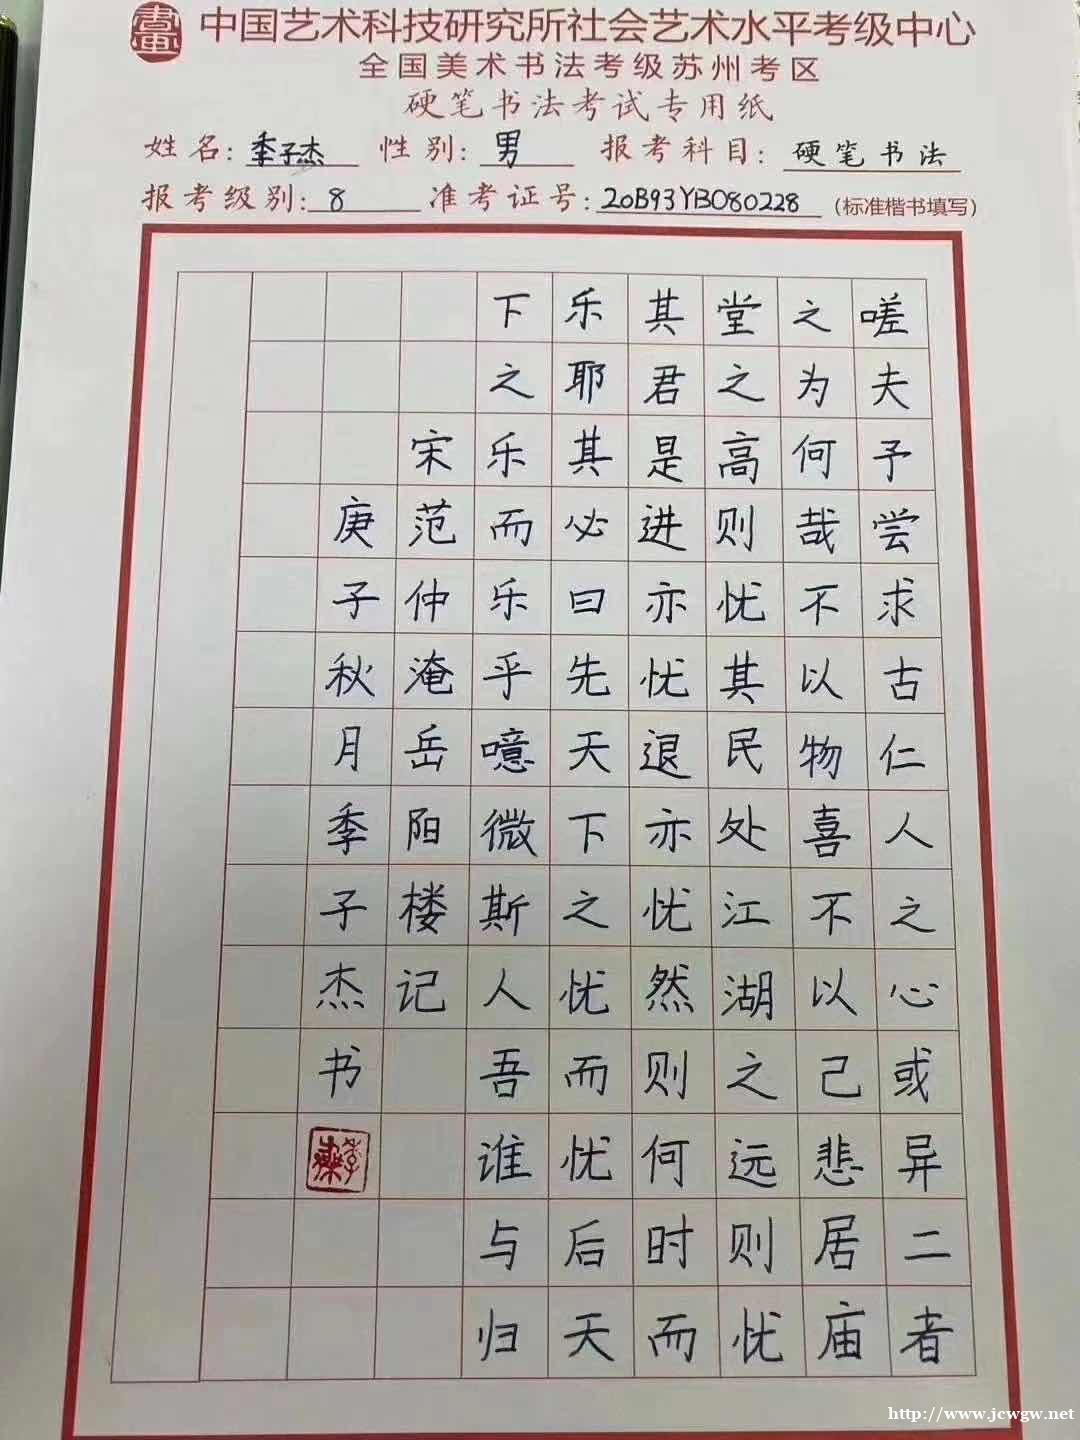 中国艺术科技研究所社会艺术水平考级中心
全国美术书法考级苏州考区
硬笔书法考试专用纸
姓名：季子杰 性别：男 报考科目：硬笔书法
报考级别：8 准考证号：20B93YB080228 （标准楷书填写）
嗟夫予尝求古仁人之心或异二者
之为何哉不以物喜不以己悲居庙
堂之高则忧其民处江湖之远则忧
其君是进亦忧退亦忧然则何时而
乐耶其必曰先天下之忧而忧后天
下之乐而乐乎噫微斯人吾谁与归
宋范仲淹岳阳楼记
庚子秋月季子杰书
http://www.jcwgw.net